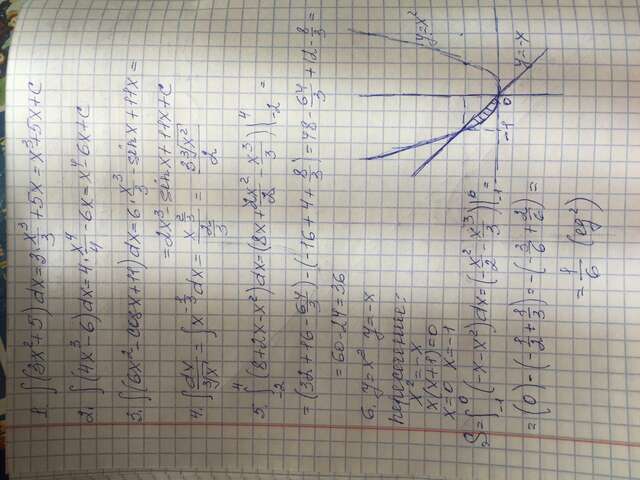 1. ∫(3x²+5)dx=3·x³/3+5x=x³+5x+C
2. ∫(4x³-6)dx=4·x⁴/4-6x=x⁴-6x+C
3. ∫(6x²-cosx+11)dx=6·x³/3-sinx+11x=
=2x³-sinx+11x+C
4. ∫dx/³√x=∫x^(-1/3)dx=x^(2/3)/(2/3)=3³√x²/2
5. ∫₋₂⁴(8+2x-x²)dx=(8x+2x²/2-x³/3)|₋₂⁴=
=(32+16-64/3)-(-16+4+8/3)=48-64/3+12-8/3=
=60-24=36
6. y=x² y=-x
пересечение:
x²=-x
x(x+1)=0
x=0 x=-1
S=∫₋₁⁰(-x-x²)dx=(-x²/2-x³/3)|₋₁⁰=
=(0)-(-1/2+1/3)=-(-3/6+2/6)=
=1/6 (ед²)
y=x²
y=-x
0
-1
-1